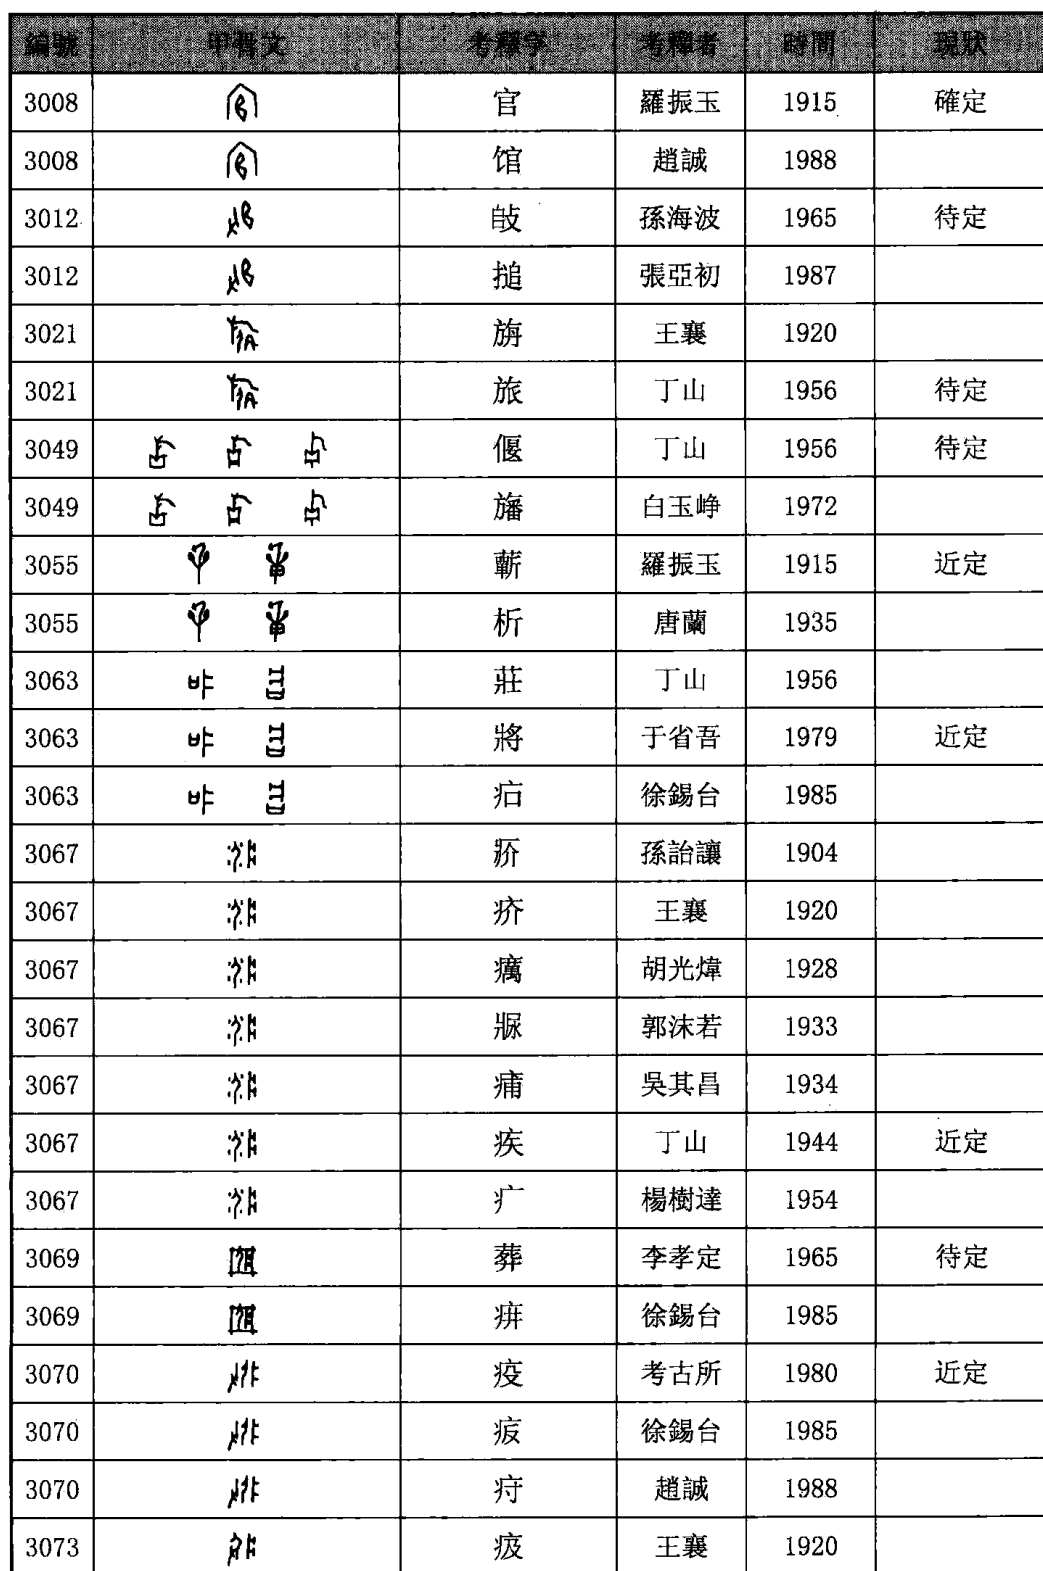 編號 甲骨文 考釋字 考釋者 時間 現狀
3008 官 羅振玉 1915 確定
3008 馆 趙誠 1988
3012 㪤 孫海波 1965 待定
3012 搥 張亞初 1987
3021 旃 王襄 1920
3021 旅 丁山 1956 待定
3049 偃 丁山 1956 待定
3049 旛 白玉崢 1972
3055 蘄 羅振玉 1915 近定
3055 析 唐蘭 1935
3063 莊 丁山 1956
3063 將 于省吾 1979 近定
3063 徐錫台 1985
3067 孫詒讓 1904
3067 疥 王襄 1920
3067 癘 胡光煒 1928
3067 郭沫若 1933
3067 痡 吳其昌 1934
3067 疾 丁山 1944 近定
3067 疒 楊樹達 1954
3069 葬 李孝定 1965 待定
3069 徐錫台 1985
3070 疫 考古所 1980 近定
3070 徐錫台 1985
3070 疛 趙誠 1988
3073 王襄 1920